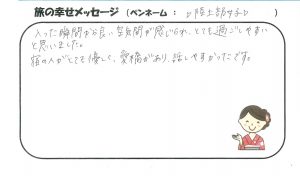 旅の幸せメッセージ (ペンネーム : ♪陸上部女子♪ )
入った瞬間から良い空気間が感じられ、とても過ごしやすい
と思いました。
宿の人がとても優しく、愛橋があり、話しやすかったです。